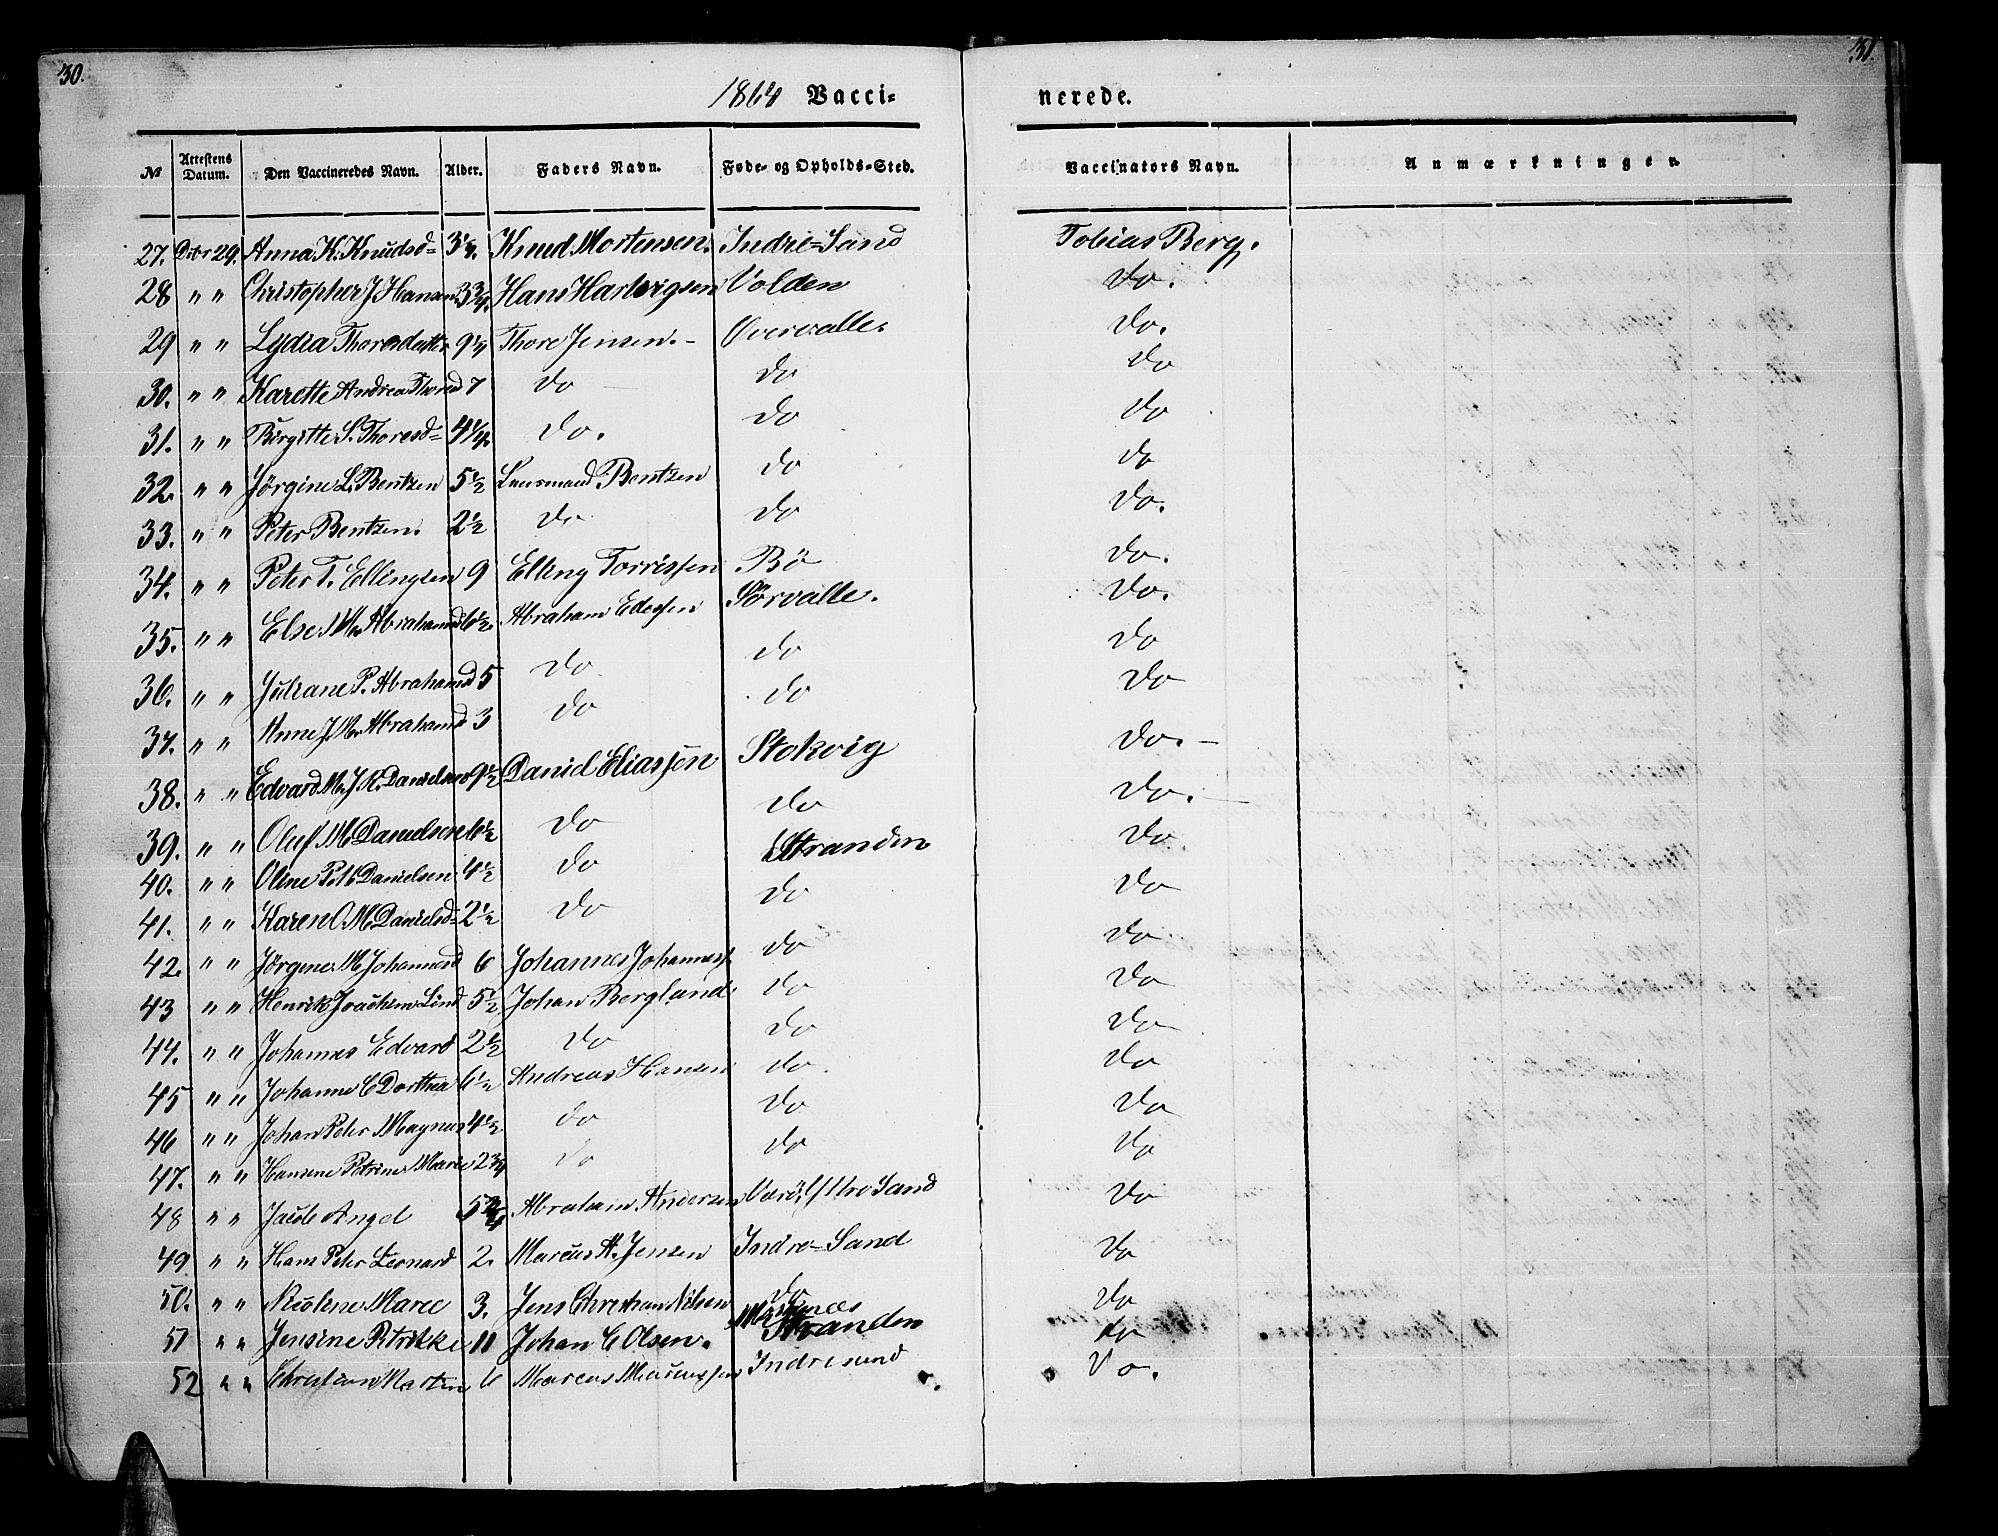 30. 31.
1864 Vacci- nerede.
№ Attestens Datum. Den Vaccineredes Navn. Alder. Faders Navn. Føde- og Opholds-Sted. Vaccinators Navn. Anmærkninger.
27. Dcbr 29. Anna K. Knudsd= 3 1/4. Knud Mortensen. Indre=Sand Tobias Berg.
28 " " Christopher J Hansen 3 3/4. Hans Hartvigsen Volden do.
29 " " Lydia Thoresdatter 9 1/4 Thore Jensen.- Overvalle. do.
30. " " Karette Andrea Thoresd 7 do do do
31. " " Birgitte S. Thoresd= 4 1/4. do. do do
32. " " Jørgine L. Bentzen 5 1/2 Lensmand Bentzen do do
33. " " Peter Bentzen. 2 1/2 do do do.
34. " " Peter T. Ellingsen 9 Elling Torrissen Bö do.
35. " " Else M. Abrahamsd 6 1/2. Abraham Edessen Sørvalle. do.
36. " " Juliane P. Abrahamsd 5 do do do
37. " " Anne J. M. Abrahamsd 3 do do do
38. " " Edvard M. J. K. Danielsen 9 1/2 Daniel Eliassen Stokvig do.-
39. " " Oluf M Danielsen 6 1/2 do do do.-
40. " " Oline Pet. Danielsen 4 1/2 do Stranden do
41. " " Karen O M. Danielsd- 2 1/2 do do do
42. " " Jørgine M. Johannesd 6 Johannes Johanness. do do
43 " " Henrik Joachim Lind 5 1/2 Johan Bergland do do
44. " " Johannes Edvard 2 1/2 do do do
45 " " Johanne C Dorthea 6 1/2 Andreas Hansen do. do
46 " " Johan Peter Magnus 4 1/2 do do do
47. " " Hansene Petrine Marie 2 3/4 do do do
48 " " Jacob Angel 5 3/4 Abraham Andersen Værö, Ystre Sand do
49. " " Hans Peter Leonard 2. Marcus A. Jensen Indre-Sand do
50. " " Nicoline Marie 3. Jens Christian Nilsen do do
51 " " Jensine Petrikke 11 Johan C Olsen. Måsnes Stranden do
52 " " Christian Martin 6 Marcus Marcussen Indresand do.